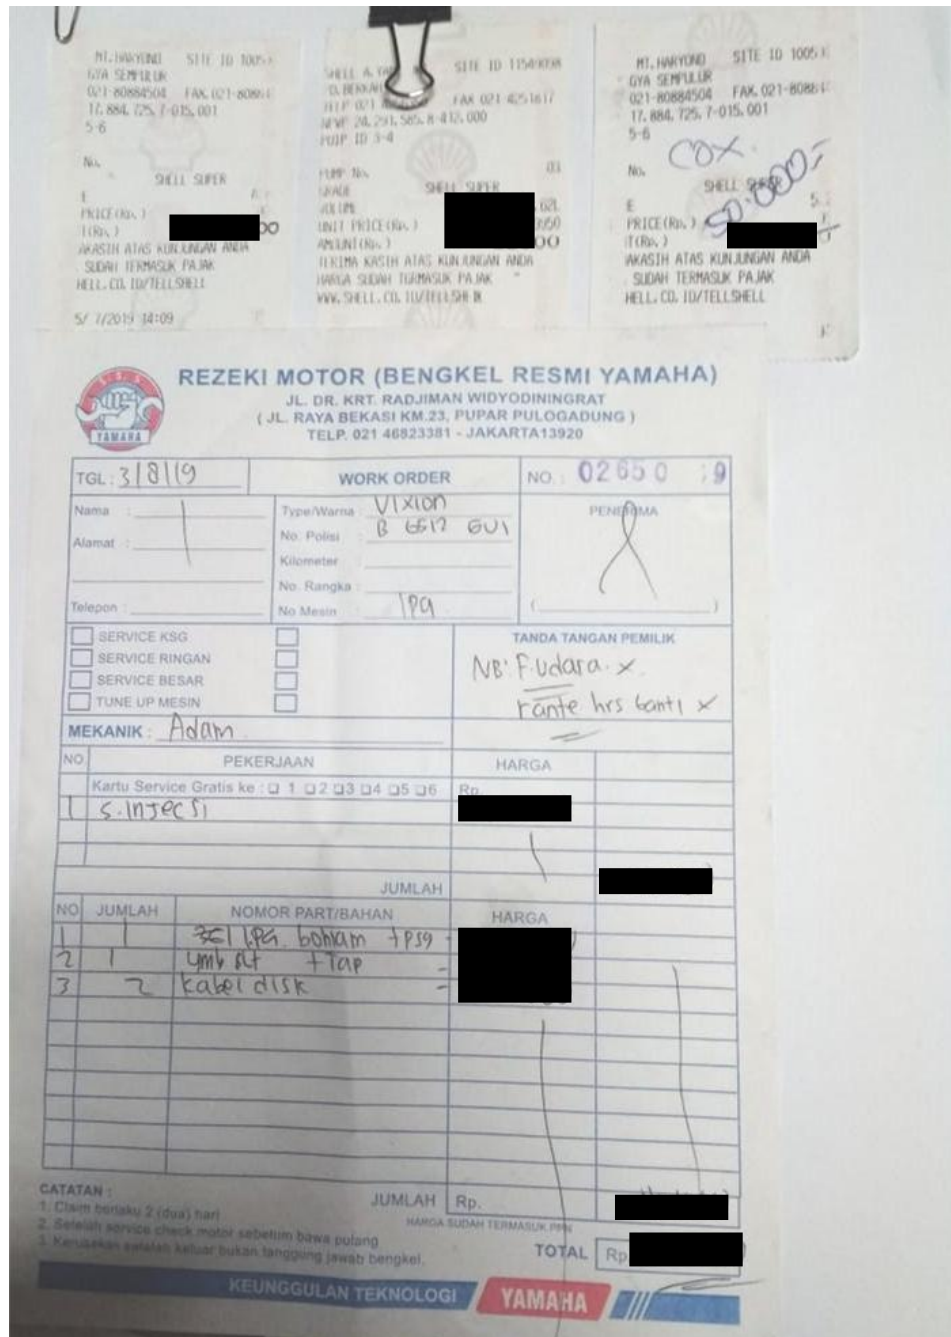 MT. HARYONO SITE ID 1005
GYA SEMPULUR
021-80884504 FAX. 021-8088
17. 884. 725. 7-015. 001
5-6
No.
SHELL SUPER
E
PRICE(Rp. )
T(Rp. )
AKASIH ATAS KUNJUNGAN ANDA
SUDAH TERMASUK PAJAK
HELL. CO. ID/TELLSHELL
5/ 7/2019 14:09
SHELL A. SITE ID
FAX 021 4251617
PUMP No. 03
GRADE SHELL SUPER
VOLUME 62L
UNIT PRICE(Rp. )
AMOUNT(Rp. )
TERIMA KASIH ATAS KUNJUNGAN ANDA
HARGA SUDAH TERMASUK PAJAK
WWW. SHELL. CO. ID/TELLSHELL
MT. HARYONO SITE ID 1005
GYA SEMPULUR
021-80884504 FAX. 021-8088
17. 884. 725. 7-015. 001
5-6
COX.
No.
SHELL SUPER
50.000;-
E 5.
PRICE(Rp. )
T(Rp. )
AKASIH ATAS KUNJUNGAN ANDA
SUDAH TERMASUK PAJAK
HELL. CO. ID/TELLSHELL
S.S.S
YAMAHA
REZEKI MOTOR (BENGKEL RESMI YAMAHA)
JL. DR. KRT. RADJIMAN WIDYODININGRAT
( JL. RAYA BEKASI KM.23, PUPAR PULOGADUNG )
TELP. 021 46823381 - JAKARTA13920
TGL : 3/8/19
WORK ORDER
NO. : 02650 9
Nama :
Alamat :
Telepon :
Type/Warna : VIXION
No. Polisi : B 6517 GUI
Kilometer :
No. Rangka :
No Mesin : 1PA
PENERIMA
( )
SERVICE KSG
SERVICE RINGAN
SERVICE BESAR
TUNE UP MESIN
TANDA TANGAN PEMILIK
NB: F.udara. x
rante hrs ganti x
MEKANIK : Adam
NO. PEKERJAAN HARGA
Kartu Service Gratis ke : 1 2 3 4 5 6 Rp.
1 S.Injecsi
JUMLAH
NO JUMLAH NOMOR PART/BAHAN HARGA
1 1 1PA. bohlam + psg -
2 1 ymb slt + Tap -
3 2 kabel disk -
CATATAN :
1. Claim berlaku 2 (dua) hari
2. Setelah service check motor sebelum bawa pulang
3. Kerusakan setelah keluar bukan tanggung jawab bengkel.
JUMLAH Rp.
HARGA SUDAH TERMASUK PPN
TOTAL Rp
KEUNGGULAN TEKNOLOGI YAMAHA